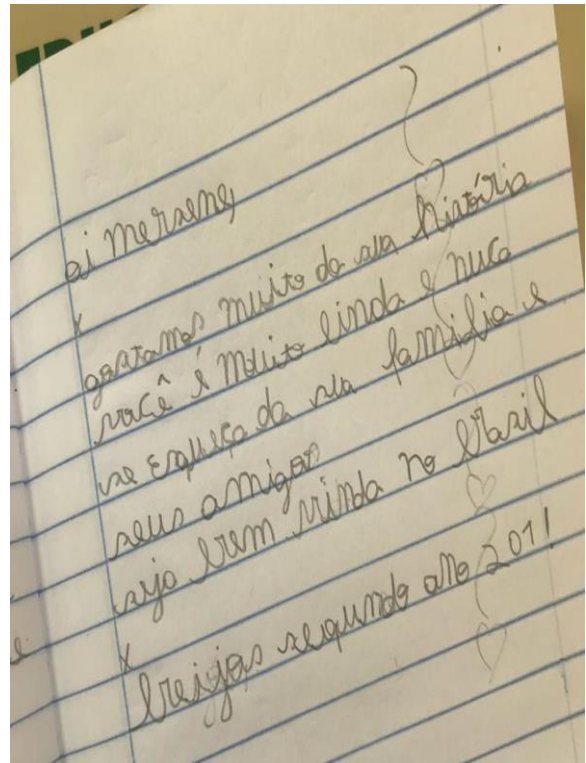 oi mersene,
x
gostamos muito da sua história
você é muito linda e nuca
se esqueça da sua família e
seus amigos
seja bem vinda no Brasil
x
beijos segundo ano 201!